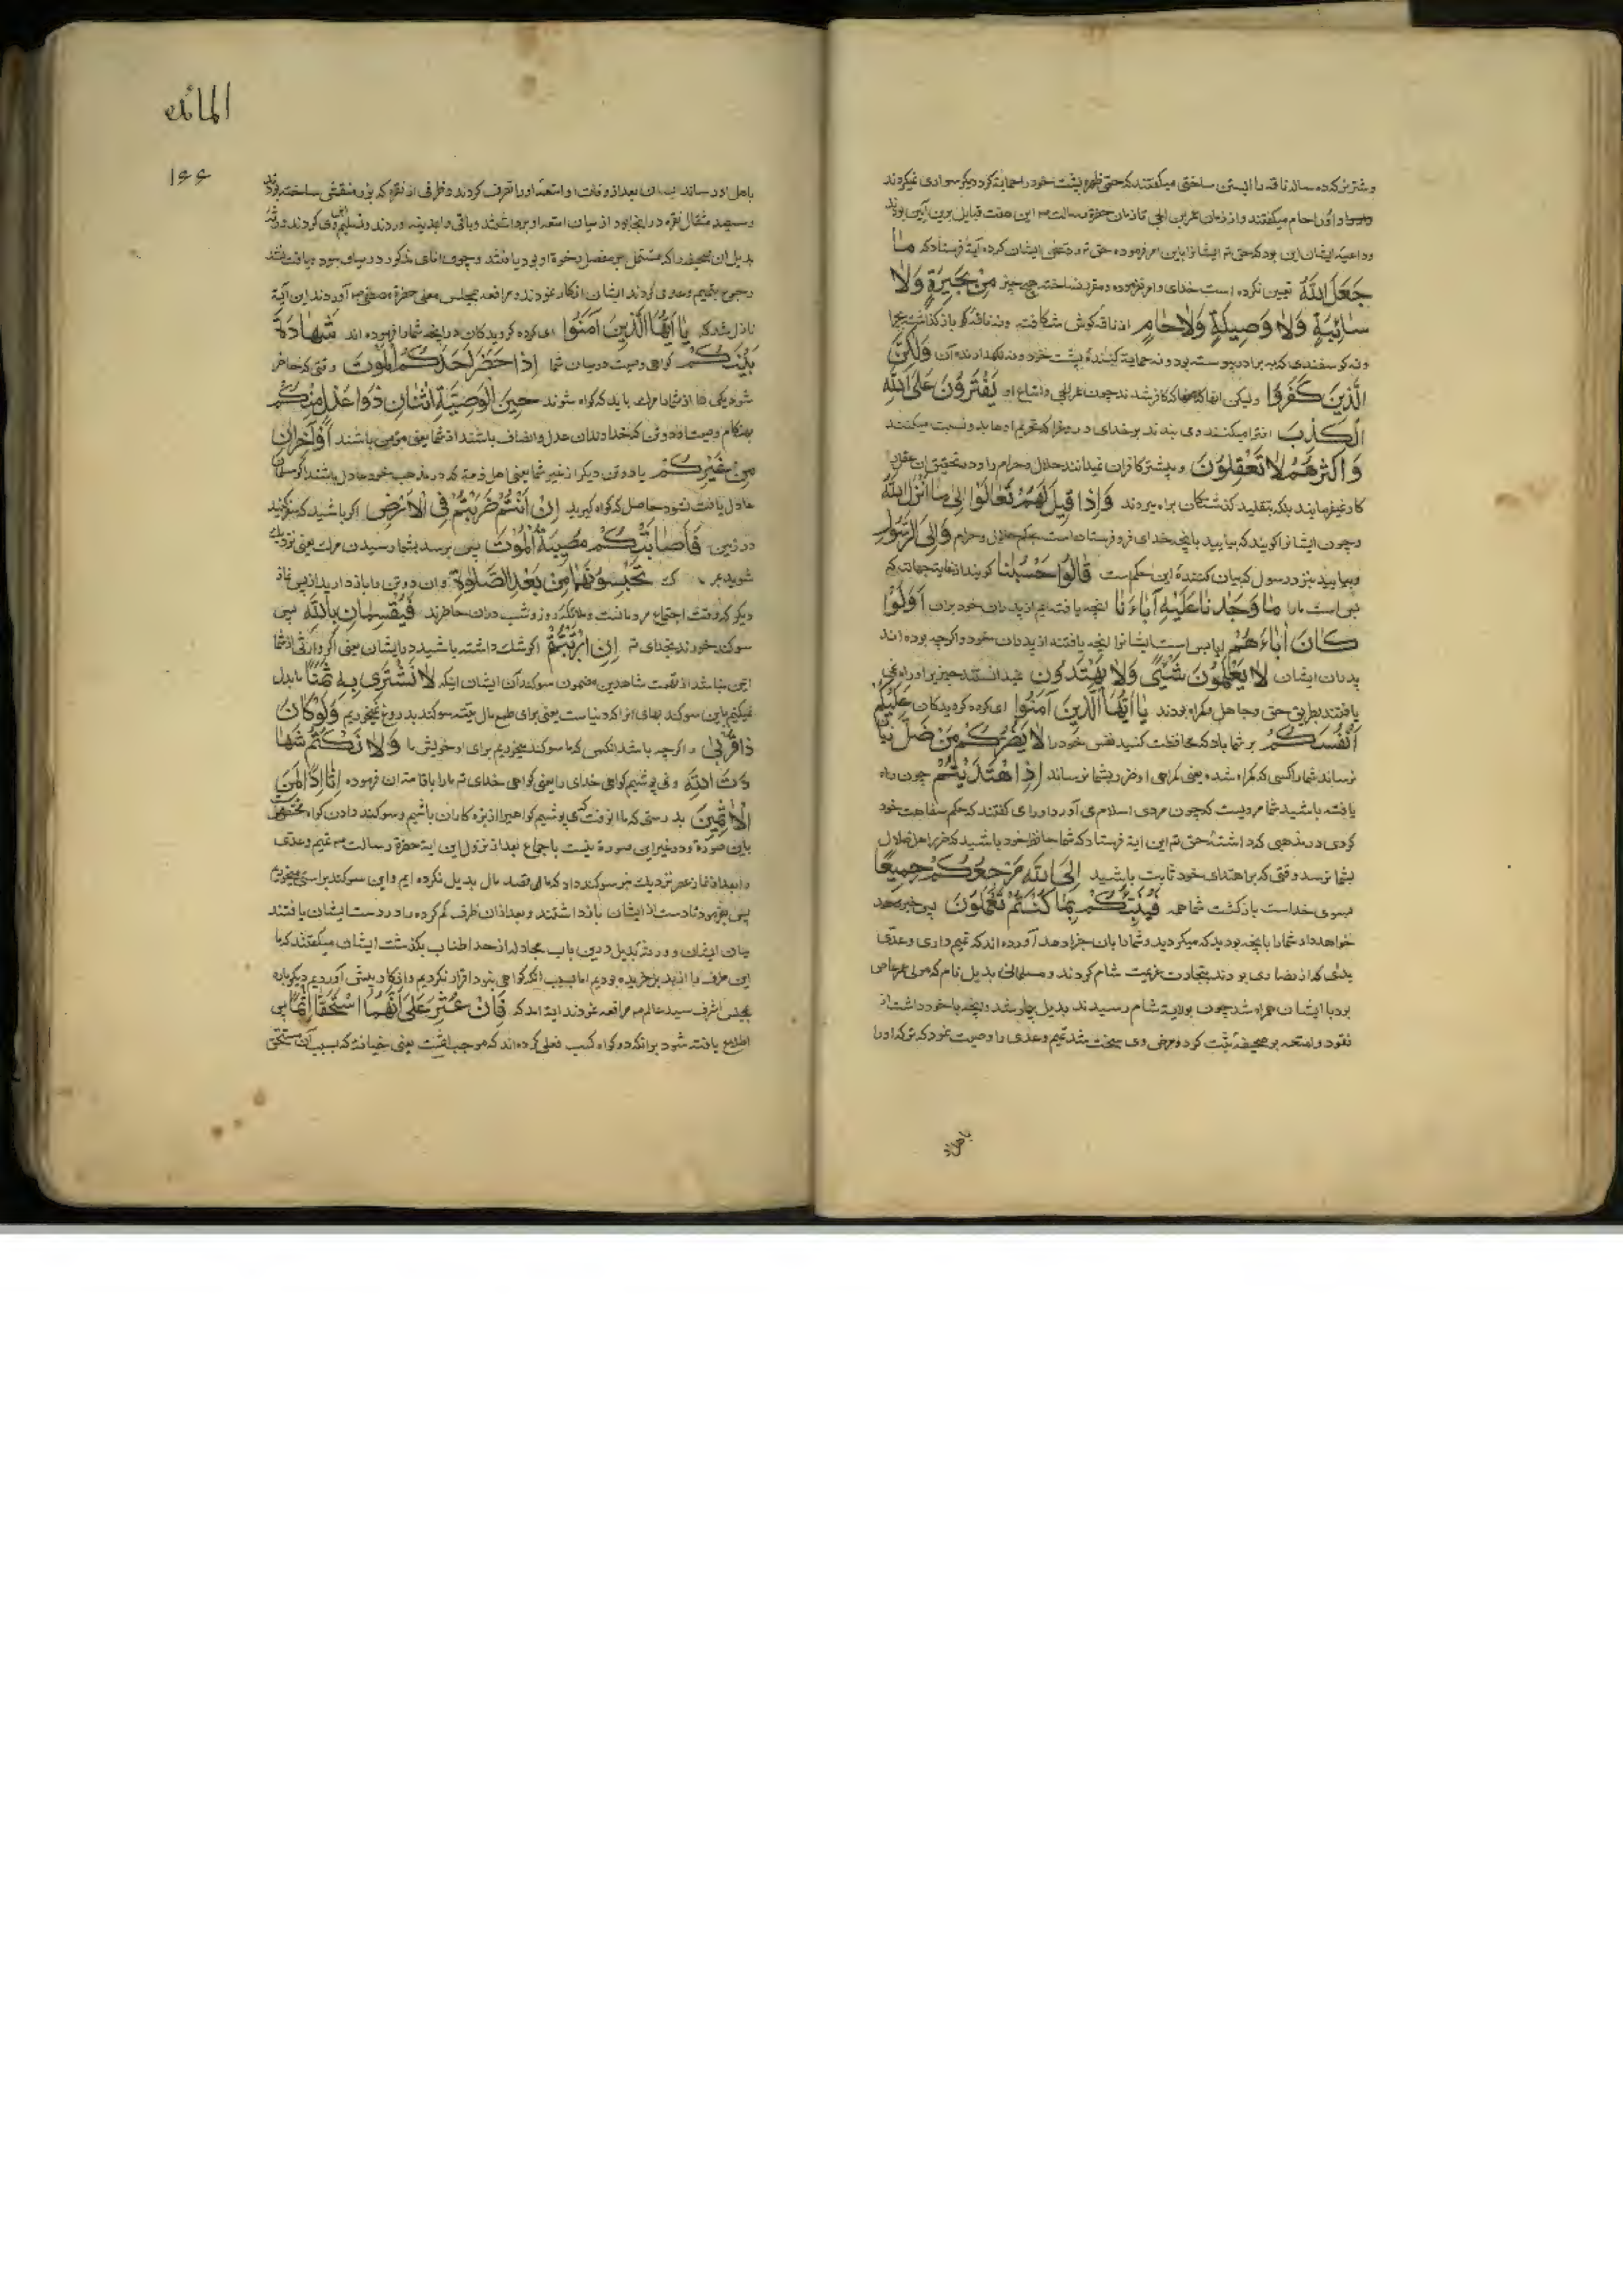 و شتر نر که ده ساله ناقه را ابستن ساختی میکفتند که حتی ظهره پشت خود را حمایة کرد دیکر سواری نمیکردند
و او را حام میکفتند و از زمان عمرو بن لحی تا زمان حضرة رسالت این هفت قبایل برین آیین بودند
و داعیۀ ایشان این بود که حق ایشانرا باین امر فرموده حق تع در نفی ایشان کرده آیة فرستاد که مَا
جَعَلَ اللهُ تعیین نکرده است خدای و امر نفرموده و مقرر نساخته هیچ چیز مِنْ بَحِيرَةٍ وَلَا
سَائِبَةٍ وَلَا وَصِيلَةٍ وَلَا حَامٍ از ناقه کوش شکافته و نه ناقه کو باز کذاشته
و نه کوسفندی که به برادر پیوسته بود و نه حمایة کنندۀ پشت خود و نه نکهدارنده آن وَلٰكِنَّ
الَّذِينَ كَفَرُوا و لیکن انها که کافر شدند چون عمرو لحی و اتباع او يَفْتَرُونَ عَلَى اللهِ
الْكَذِبَ افترا میکنند و می بندند بر خدای دروغ را که تحریم اینها بدو نسبت میکنند
وَأَكْثَرُهُمْ لَا تَعْقِلُونَ و بیشتر کافران نمیدانند حلال و حرام را و در تحقیق ان عقل
کار نمیفرمایند بلکه بتقلید کذشتکان براه میروند وَإِذَا قِيلَ لَهُمْ تَعَالَوْا إِلَى مَا أَنْزَلَ اللهُ
و چون ایشانرا کویند که بیایید بانچه خدای فرو فرستاده است حکم حلال و حرام وَإِلَى الرَّسُولِ
و بیایید نیز در رسول که بیان کنندۀ این حکم است قَالُوا حَسْبُنَا کویند از غایت جهالت که
بس است ما را مَا وَجَدْنَا عَلَيْهِ آبَاءَنَا انچه یافته ایم از پدران خود بران أَوَلَوْ
كَانَ آبَاءَهُمْ ایا بس است ایشانرا انچه یافتند از پدران خود و اکرچه بوده اند
پدران ایشان لَا يَعْلَمُونَ شَيْئًا وَلَا يَهْتَدُونَ نمیدانستند چیزیرا و راه نمی
یافتند بطریق حق و جاهل و کمراه بودند يَا أَيُّهَا الَّذِينَ آمَنُوا ای کروه کرویدکان عَلَيْكُمْ
أَنْفُسَكُمْ بر شما باد که محافظت کنید نفس خود را لَا يَضُرُّكُمْ مَنْ ضَلَّ زیان
نرساند شما را کسی که کمراه شده یعنی کمراهی او ضرر بشما نرساند إِذَا اهْتَدَيْتُمْ چون راه
یافته باشید شما مرویست که چون مردی اسلام می آورد او را می کفتند که حکم سفاهت خود
کردی در مذهبی که داشتۀ حق تع این ایة فرستاد که شما حافظ خود باشید که ضرر اهل ضلال
بشما نرسد وقتی که بر اهتدای خود ثابت باشید إِلَى اللهِ مَرْجِعُكُمْ جَمِيعًا
بسوی خداست بازکشت شما همه فَيُنَبِّئُكُمْ بِمَا كُنْتُمْ تَعْمَلُونَ پس خبر
خواهد داد شما را بانچه بودید که میکردید و شما را بان جزا دهد آورده اند که تمیم داری و عدی
بدی که از نصاری بودند بتجارت عزیمت شام کردند و مسلمانی بدیل نام که مولی عمرو عاص
بود با ایشان همراه شد چون بولایة شام رسیدند بدیل بیمار شد و انچه با خود داشت از
نقود و امتعه بر صحیفه ثبت کرد و مرض وی سخت شد تمیم و عدی را وصیت نمود که ترکه او را
باهل او
المائده
۱۶۶
باهل او رسانند ایشان بعد از وفات او امتعه او را تصرف کردند و ظرفی از نقره که بزر منقش ساخته بودند
و سیصد مثقال نقره در انجا بود از میان امتعه او برداشتند و باقی را بمدینه اوردند و تسلیم اهل وی کردند
بدیل ان صحیفه را که مشتمل بر مفصل رخوة او بود یافتند و چون انای مذکور در میان نبود
رجوع بتمیم و عدی کردند ایشان انکار نمودند و مرافعه بمجلس معلی حضرة مصطفی آوردند این آیة
نازل شد که يَا أَيُّهَا الَّذِينَ آمَنُوا ای کروه کرویدکان در انچه شما را فرموده اند شَهَادَةُ
بَيْنِكُمْ کواهی وصیت در میان شما إِذَا حَضَرَ أَحَدَكُمُ الْمَوْتُ وقتی که حاضر
شود یکی را از شما مرک باید که کواه شوند حِينَ الْوَصِيَّةِ اثْنَانِ ذَوَا عَدْلٍ مِنْكُمْ
بهنکام وصیت دو تن که خداوندان عدل و انصاف باشند از شما یعنی مؤمن باشند أَوْ آخَرَانِ
مِنْ غَيْرِكُمْ یا دو تن دیکر از غیر شما یعنی اهل ذمه که در مذهب خود عادل باشند اکر مسلمان
عادل یافت نشود حاصل که کواه کیرید إِنْ أَنْتُمْ ضَرَبْتُمْ فِي الْأَرْضِ اکر باشید که سفر کنید
در زمین فَأَصَابَتْكُمْ مُصِيبَةُ الْمَوْتِ پس برسد بشما رسیدن مرک یعنی نزدیک
شوید تَحْبِسُونَهُمَا مِنْ بَعْدِ الصَّلٰوةِ و ان دو تن را باز دارید از پس نماز
دیکر که وقت اجتماع مردمانست و ملائکه روز و شب دران حاضرند فَيُقْسِمَانِ بِاللهِ پس
سوکند خورند بخدای تع إِنِ ارْتَبْتُمْ اکر شک داشته باشید در ایشان یعنی اکر وارثی از شما
ایمن نباشد از تهمت شاهدین و مضمون سوکند ان ایشان اینکه لَا نَشْتَرِي بِهِ ثَمَنًا ما بدل
نمیکنیم باین سوکند بهای انرا که دنیاست یعنی برای طمع مال سوکند بدروغ نمیخوریم وَلَوْ كَانَ
ذَا قُرْبَى و اکرچه باشد انکس که ما سوکند میخوریم برای او خویش ما وَلَا نَكْتُمُ شَهَا
دَتَ اللهِ و نمی پوشیم کواهی خدای را یعنی کواهی خدای تع ما را باقامت ان فرموده إِنَّا إِذًا لَمِنَ
الْآثِمِينَ بدرستی که ما انوقت که بپوشیم کواهیرا از بزه کاران باشیم و سوکند دادن کواه مخصوص
باین صورة و در غیر این صورة نیست باجماع بعد از نزول این ایة حضرة رسالت تمیم و عدی
را بعد از نماز عصر نزدیک منبر سوکند داد که ما قصد مال بدیل نکرده ایم و این سوکند براستی میخوریم
پس بفرمود تا دست از ایشان بازداشتند و بعد ازان ظرف کم کرده را در دست ایشان یافتند
میان ایشان و ورثۀ بدیل درین باب مجادله از حد اطناب بکذشت ایشان میکفتند که ما
این ظرف را از بدیل خریده بودیم اما بسبب انکه کواهی نبود اقرار نکردیم و انکار پیش آوردیم دیکرباره
بمجلس اشرف سید عالم مرافعه نمودند ایة امد که فَإِنْ عُثِرَ عَلَى أَنَّهُمَا اسْتَحَقَّا إِثْمًا پس
اطلاع یافته شود بر انکه دو کواه کسب فعلی کرده اند که موجب اثمست یعنی خیانة که بسبب آن مستحق